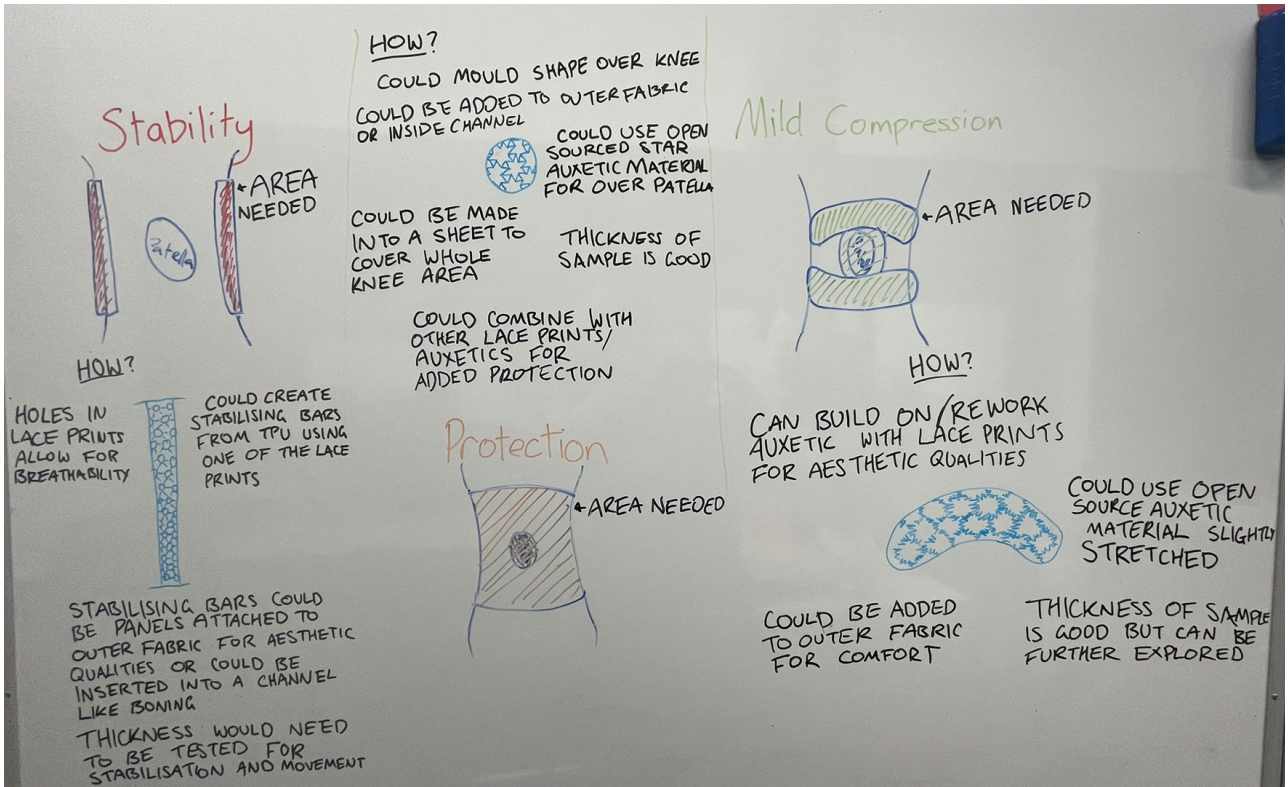 Stability
AREA
NEEDED
Patella
HOW?
HOLES IN
LACE PRINTS
ALLOW FOR
BREATHABILITY
COULD CREATE
STABILISING BARS
FROM TPU USING
ONE OF THE LACE
PRINTS
STABILISING BARS COULD
BE PANELS ATTACHED TO
OUTER FABRIC FOR AESTHETIC
QUALITIES OR COULD BE
INSERTED INTO A CHANNEL
LIKE BONING
THICKNESS WOULD NEED
TO BE TESTED FOR
STABILISATION AND MOVEMENT
HOW?
COULD MOULD SHAPE OVER KNEE
COULD BE ADDED TO OUTER FABRIC
OR INSIDE CHANNEL
COULD USE OPEN
SOURCED STAR
AUXETIC MATERIAL
FOR OVER PATELLA
COULD BE MADE
INTO A SHEET TO
COVER WHOLE
KNEE AREA
THICKNESS OF
SAMPLE IS GOOD
COULD COMBINE WITH
OTHER LACE PRINTS/
AUXETICS FOR
ADDED PROTECTION
Protection
AREA NEEDED
Mild Compression
AREA NEEDED
HOW?
CAN BUILD ON/REWORK
AUXETIC WITH LACE PRINTS
FOR AESTHETIC QUALITIES
COULD USE OPEN
SOURCE AUXETIC
MATERIAL SLIGHTLY
STRETCHED
COULD BE ADDED
TO OUTER FABRIC
FOR COMFORT
THICKNESS OF SAMPLE
IS GOOD BUT CAN BE
FURTHER EXPLORED